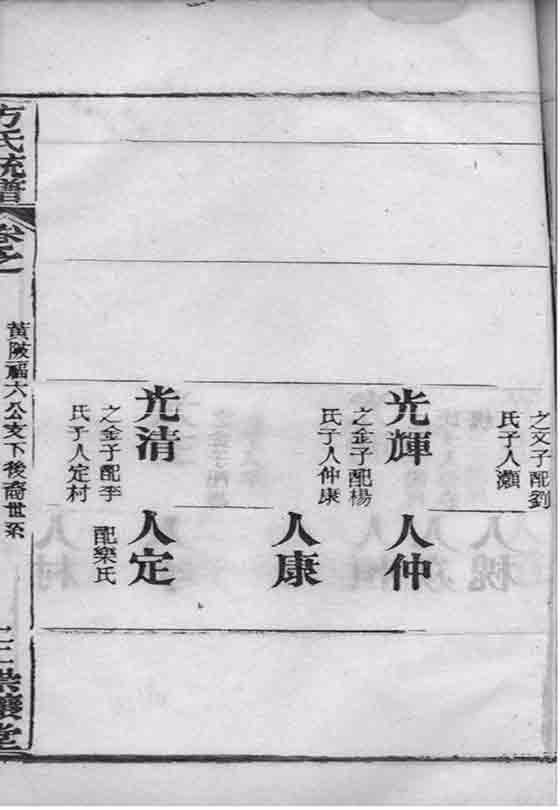 之文子配劉
氏子人灝
光輝
之金子配楊
氏子人仲康
人仲
人康
光清
之金子配李
氏子人定村
人定
配樂氏
方氏統譜
卷之
黃陂福六公支下後裔世系
堂